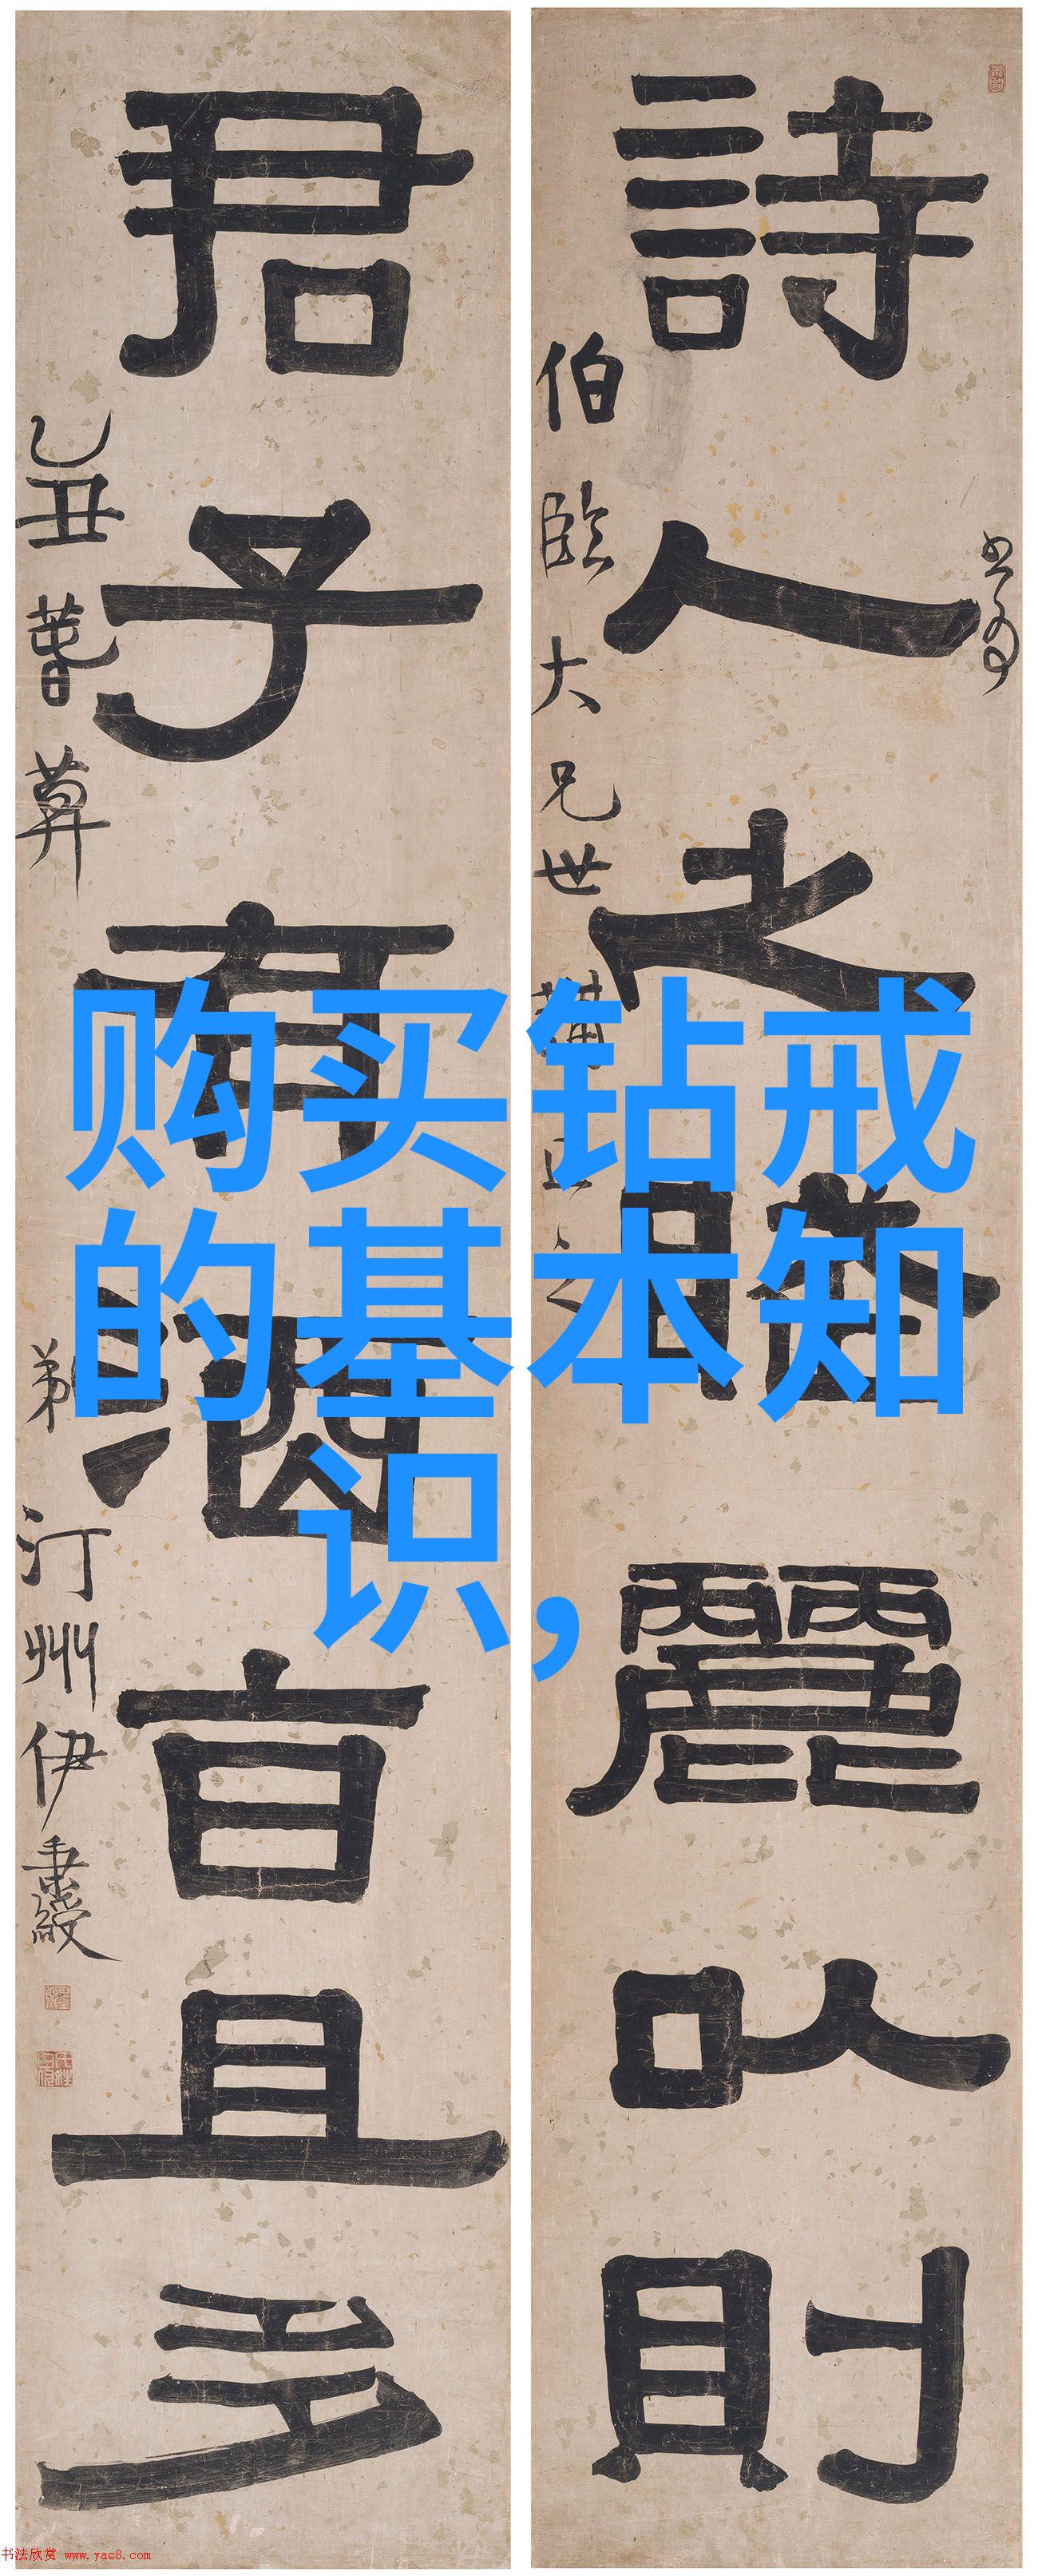 詩人之賦麗以則
伯臨大兄世
君子有酒旨且多
乙丑
弟汀州伊秉綬
购买钻戒
的基本知
识,
书法欣赏 www.yac8.com